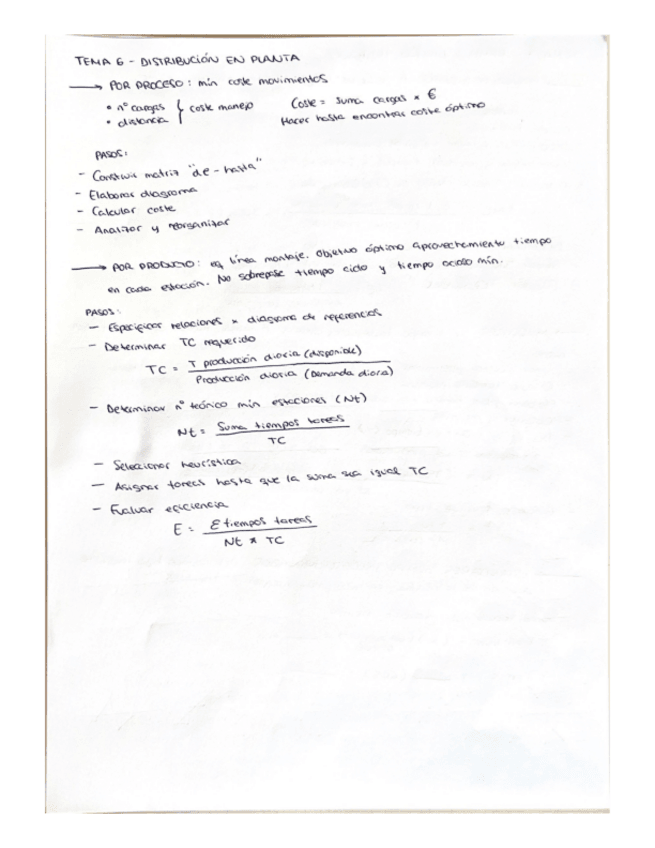 TEMA 6 - DISTRIBUCIÓN EN PLANTA
→ POR PROCESO: mín coste movimientos
• nº cargas } coste manejo
• distancia
Coste = suma cargas × €
Hacer hasta encontrar coste óptimo
PASOS:
- Construir matriz "de - hasta"
- Elaborar diagrama
- Calcular coste
- Analizar y reorganizar
→ POR PRODUCTO: eq línea montaje. Objetivo óptimo aprovechamiento tiempo
en cada estación. No sobrepase tiempo ciclo y tiempo ocioso mín.
PASOS:
- Especificar relaciones × diagrama de referencias
- Determinar TC requerido
TC = T producción diaria (disponible) / Producción diaria (Demanda diara)
- Determinar nº teórico mín estaciones (Nt)
Nt = Suma tiempos tareas / TC
- Seleccionar heurística
- Asignar tareas hasta que la suma sea igual TC
- Evaluar eficiencia
E = Σ tiempos tareas / Nt × TC